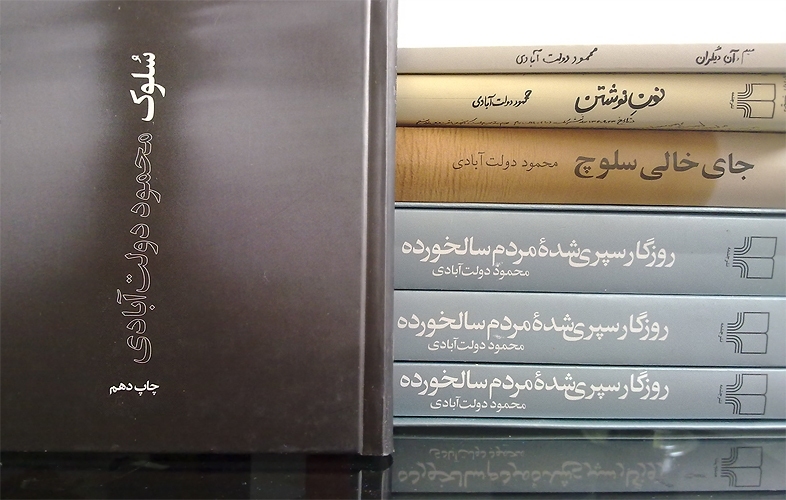 سُلوک
محمود دولت‌آبادی
چاپ دهم
میم و آن دیگران
محمود دولت آبادی
نونِ نوشتن
محمود دولت‌آبادی
جای خالی سلوچ
محمود دولت‌آبادی
روزگار سپری‌شدهٔ مردم سالخورده
محمود دولت‌آبادی
روزگار سپری‌شدهٔ مردم سالخورده
محمود دولت‌آبادی
روزگار سپری‌شدهٔ مردم سالخورده
محمود دولت‌آبادی